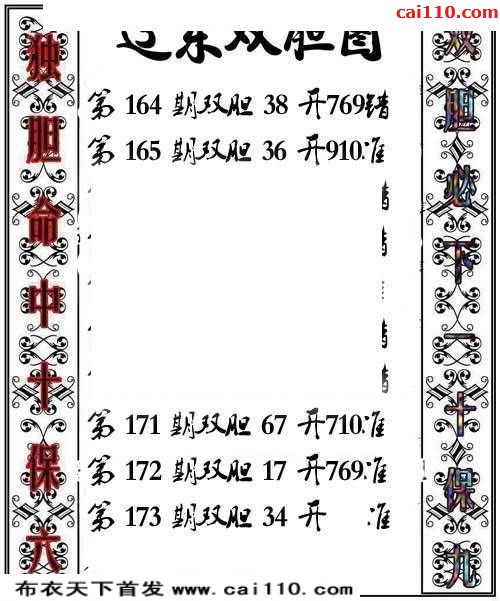 cai110.com
辽东双胆图
独胆命中十保六
第 164 期双胆 38 开769错
第 165 期双胆 36 开910准
错
错
错
错
第 171 期双胆 67 开710准
第 172 期双胆 17 开769准
第 173 期双胆 34 开 准
双胆必下一十保九
布衣天下首发 www.cai110.com